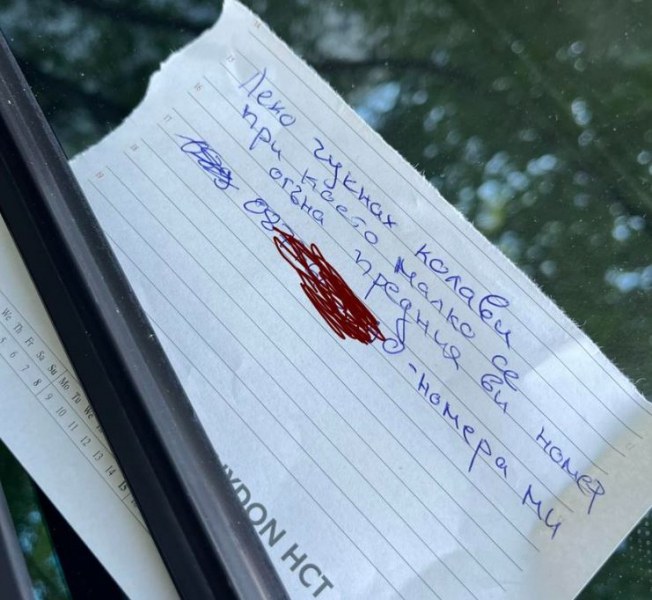 Леко чукнах колави
при което малко се
огъна предния ви номер
08
- номера ми
YDON HCT
We Th Fr Sa Su Mo Tu We
5 6 7 8 9 10 11 12 13 14 15